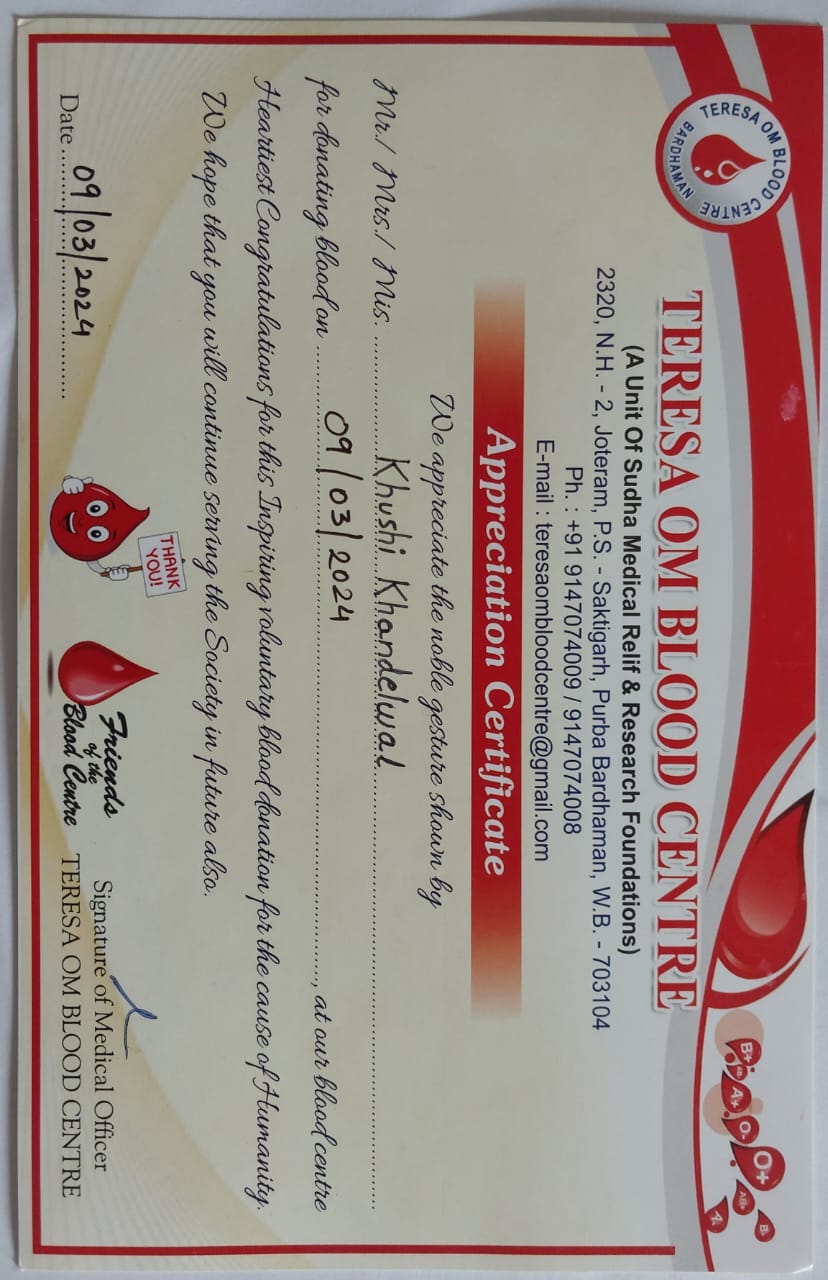 TERESA OM BLOOD CENTRE
BARDHAMAN
B+ AB- A+ O- O+ AB+ B- A-
TERESA OM BLOOD CENTRE
(A Unit Of Sudha Medical Relif & Research Foundations)
2320, N.H. - 2, Joteram, P.S. - Saktigarh, Purba Bardhaman, W.B. - 703104
Ph. : +91 9147074009 / 9147074008
E-mail : teresaombloodcentre@gmail.com
Appreciation Certificate
We appreciate the noble gesture shown by
Mr./ Mrs./ Mis. Khushi Khandelwal
for donating blood on 09/03/2024, at our blood centre
Heartiest Congratulations for this Inspiring voluntary blood donation for the cause of Humanity.
We hope that you will continue serving the Society in future also.
THANK
YOU!
Friends
of the
Blood Centre
Date 09/03/2024
Signature of Medical Officer
TERESA OM BLOOD CENTRE